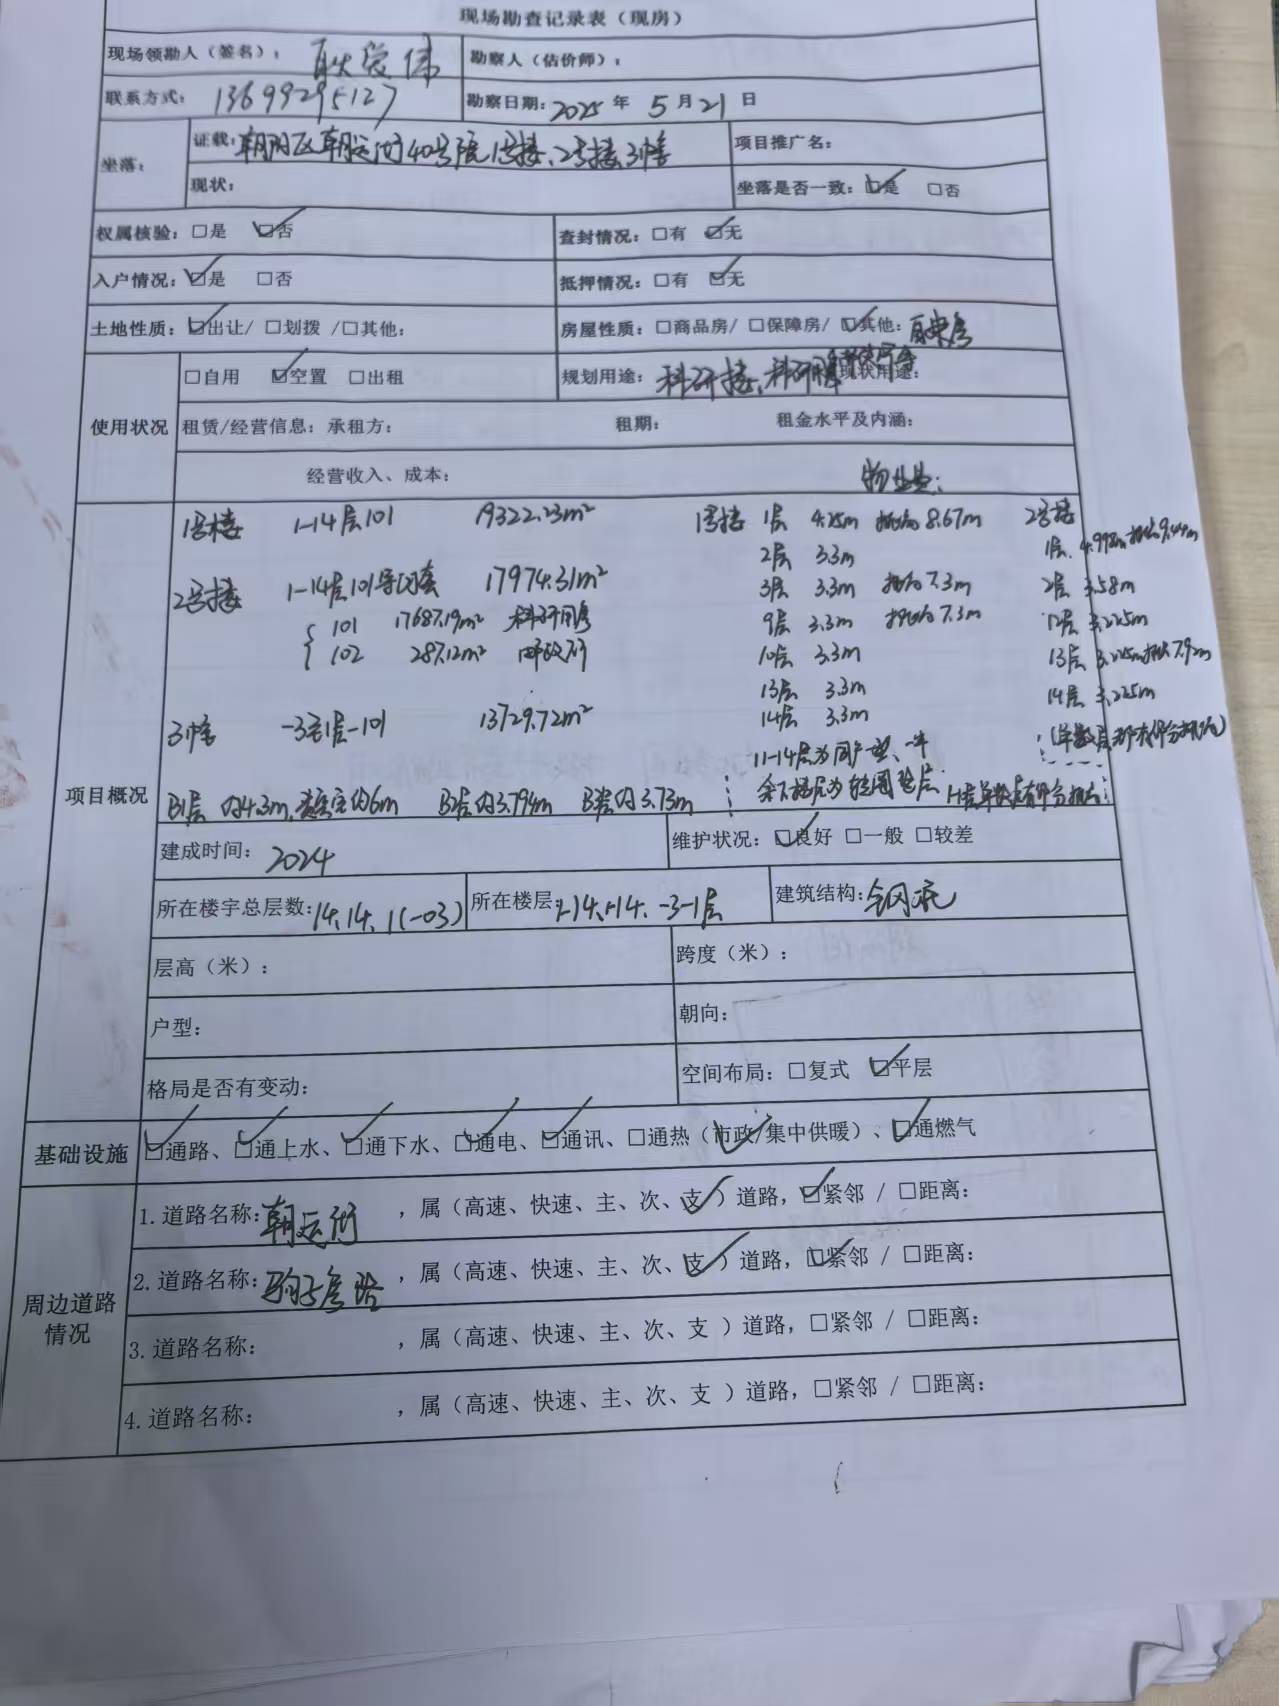 现场勘查记录表（现房）
现场领勘人（签名）： 耿爱伟 勘察人（估价师）：
联系方式： 13699295127 勘察日期：2025年 5月21日
坐落： 证载：朝阳区朝运街40号院1号楼、2号楼、3幢 项目推广名：
现状： 坐落是否一致：☑是 □否
权属核验：□是 ☑否 查封情况：□有 ☑无
入户情况：☑是 □否 抵押情况：□有 ☑无
土地性质：☑出让/ □划拨 /□其他： 房屋性质：□商品房/ □保障房/ ☑其他：
使用状况 □自用 ☑空置 □出租 规划用途：科研楼、科研 现状用途：
租赁/经营信息：承租方： 租期： 租金水平及内涵：
经营收入、成本： 物业费：
项目概况
1号楼 1-14层101 19322.23m²
2号楼 1-14层101等2套 17974.31m²
101 17687.19m² 科研用房
102 287.12m² 邮政所
3幢 -3至1层-101 13729.72m²
1号楼 1层 4.25m 挑高8.67m
2层 3.3m
3层 3.3m 挑高7.3m
9层 3.3m 挑高7.3m
10层 3.3m
13层 3.3m
14层 3.3m
11-14层为
2号楼
1层 4.998m 挑高9.44m
2层 3.58m
12层 3.225m
13层 3.225m 挑高7.92m
14层 3.225m
(单数层都有部分挑高)
B1层 约4.3m, 约6m B2层约3.794m B3层约3.73m
建成时间：2024 维护状况：☑良好 □一般 □较差
所在楼宇总层数：14、14、1(-03) 所在楼层：1-14、1-14、-3-1层 建筑结构：钢混
层高（米）： 跨度（米）：
户型： 朝向：
格局是否有变动： 空间布局：□复式 ☑平层
基础设施 ☑通路、☑通上水、☑通下水、☑通电、☑通讯、□通热（市政/集中供暖）、☑通燃气
周边道路情况
1.道路名称：朝运街 ，属（高速、快速、主、次、支）道路，☑紧邻 / □距离：
2.道路名称：驹子房路 ，属（高速、快速、主、次、支）道路，☑紧邻 / □距离：
3.道路名称： ，属（高速、快速、主、次、支 ）道路，□紧邻 / □距离：
4.道路名称： ，属（高速、快速、主、次、支 ）道路，□紧邻 / □距离：